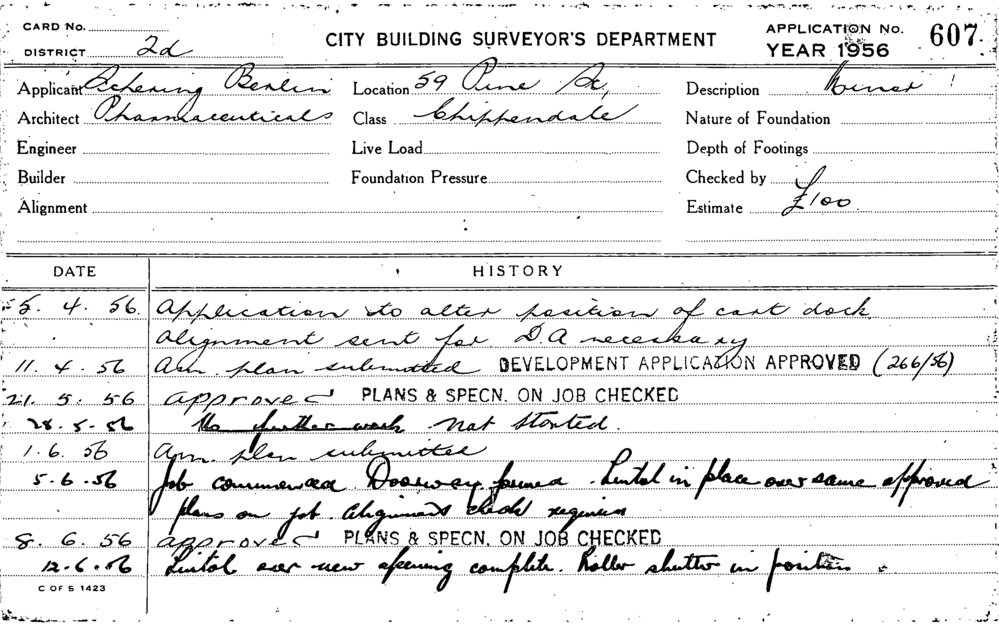 CARD No.
DISTRICT 2d
CITY BUILDING SURVEYOR'S DEPARTMENT
APPLICATION No. 607
YEAR 1956
Applicant Schering Berlin Location 59 Pine St, Description Minor
Architect Pharmaceuticals Class Chippendale Nature of Foundation
Engineer Live Load Depth of Footings
Builder Foundation Pressure Checked by
Alignment Estimate £100
DATE HISTORY
5. 4. 56. Application to alter position of cart dock
alignment sent for D.A necessary
11. 4. 56 Am. plan submitted DEVELOPMENT APPLICATION APPROVED (266/56)
21. 5. 56 approved PLANS & SPECN. ON JOB CHECKED
28. 5. 56 No further work Not Started.
1. 6. 56 Am. plan submitted
5. 6. 56 Job commenced Doorway formed. Lintol in place over same approved
plans on job. Alignment check
8. 6. 56 approved PLANS & SPECN. ON JOB CHECKED
12. 6. 56 Lintol over new opening complete. Roller shutter in position.
C OF S 1423